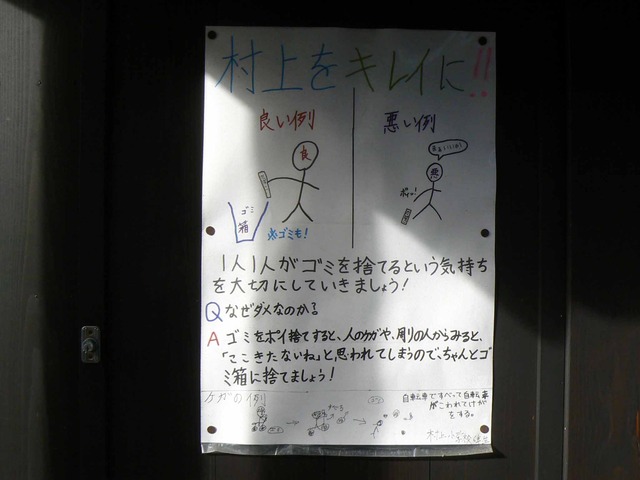 村上をキレイに!!
良い例
悪い例
良
悪
まぁいいか!
ポイッ!
ゴミ
箱
※ゴミも!
1人1人がゴミを捨てるという気持ち
を大切にしていきましょう!
Qなぜダメなのか?
A ゴミをポイ捨てすると、人のケガや、周りの人からみると、
「ここきたないね」と思われてしまうので、ちゃんとゴ
ミ箱に捨てましょう!
ケガの例
自転車ですべって自転車
がこわれてけが
をする。